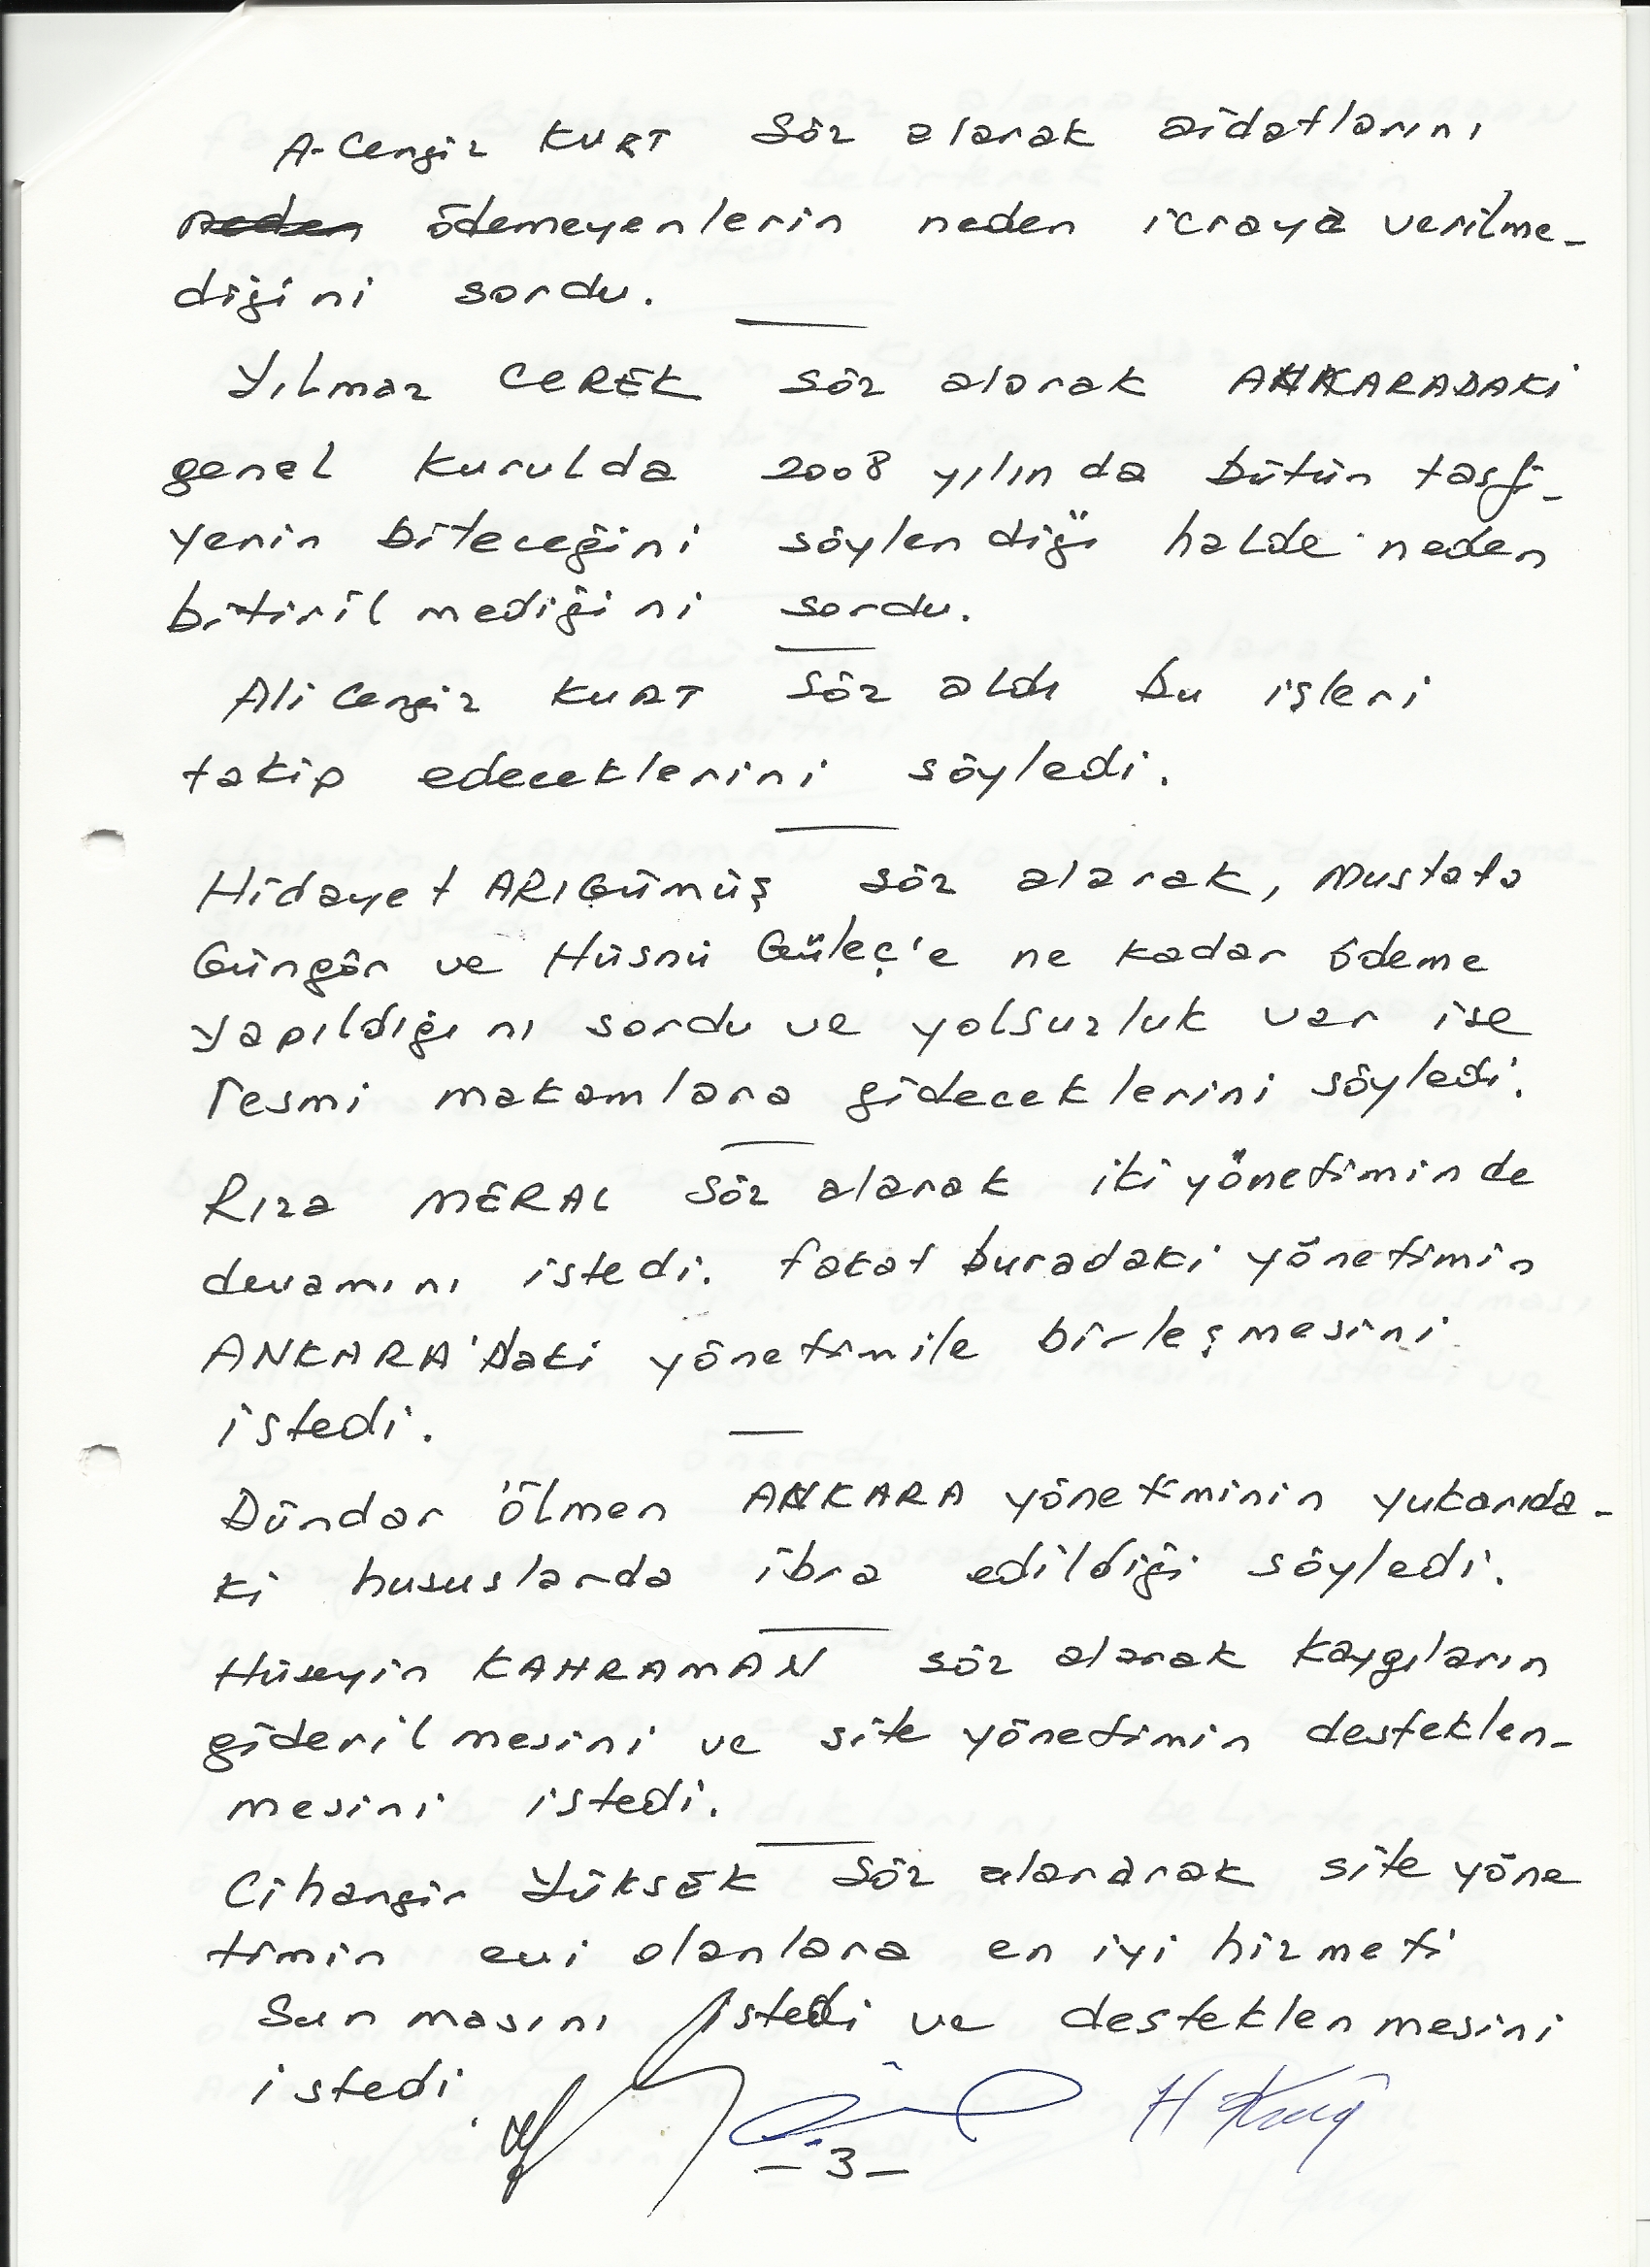 A-Cengiz KURT söz alarak aidatlarını
neden ödemeyenlerin neden icraya verilme-
diğini sordu.
Yılmaz CEREK söz alarak ANKARADAKi
genel kurulda 2008 yılında bütün tasfi-
yenin biteceğini söylendiği halde neden
bitirilmediğini sordu.
Ali Cengiz KURT söz aldı bu işleri
takip edeceklerini söyledi.
Hidayet ARIGÜMÜŞ söz alarak, Mustafa
Güngör ve Hüsnü Güleç'e ne kadar ödeme
yapıldığını sordu ve yolsuzluk var ise
resmi makamlara gideceklerini söyledi.
Rıza MERAL söz alarak iki yönetiminde
devamını istedi. fakat buradaki yönetimin
ANKARA'Daki yönetimile birleşmesini
istedi.
Dündar Ölmen ANKARA yönetiminin yukarıda-
ki hususlarda ibra edildiği söyledi.
Hüseyin KAHRAMAN söz alarak kaygıların
giderilmesini ve site yönetimin desteklen-
mesini istedi.
Cihangir YÜKSEK söz alararak site yöne
timin evi olanlara en iyi hizmeti
Sunmasını istedi ve desteklenmesini
istedi.
- 3 -